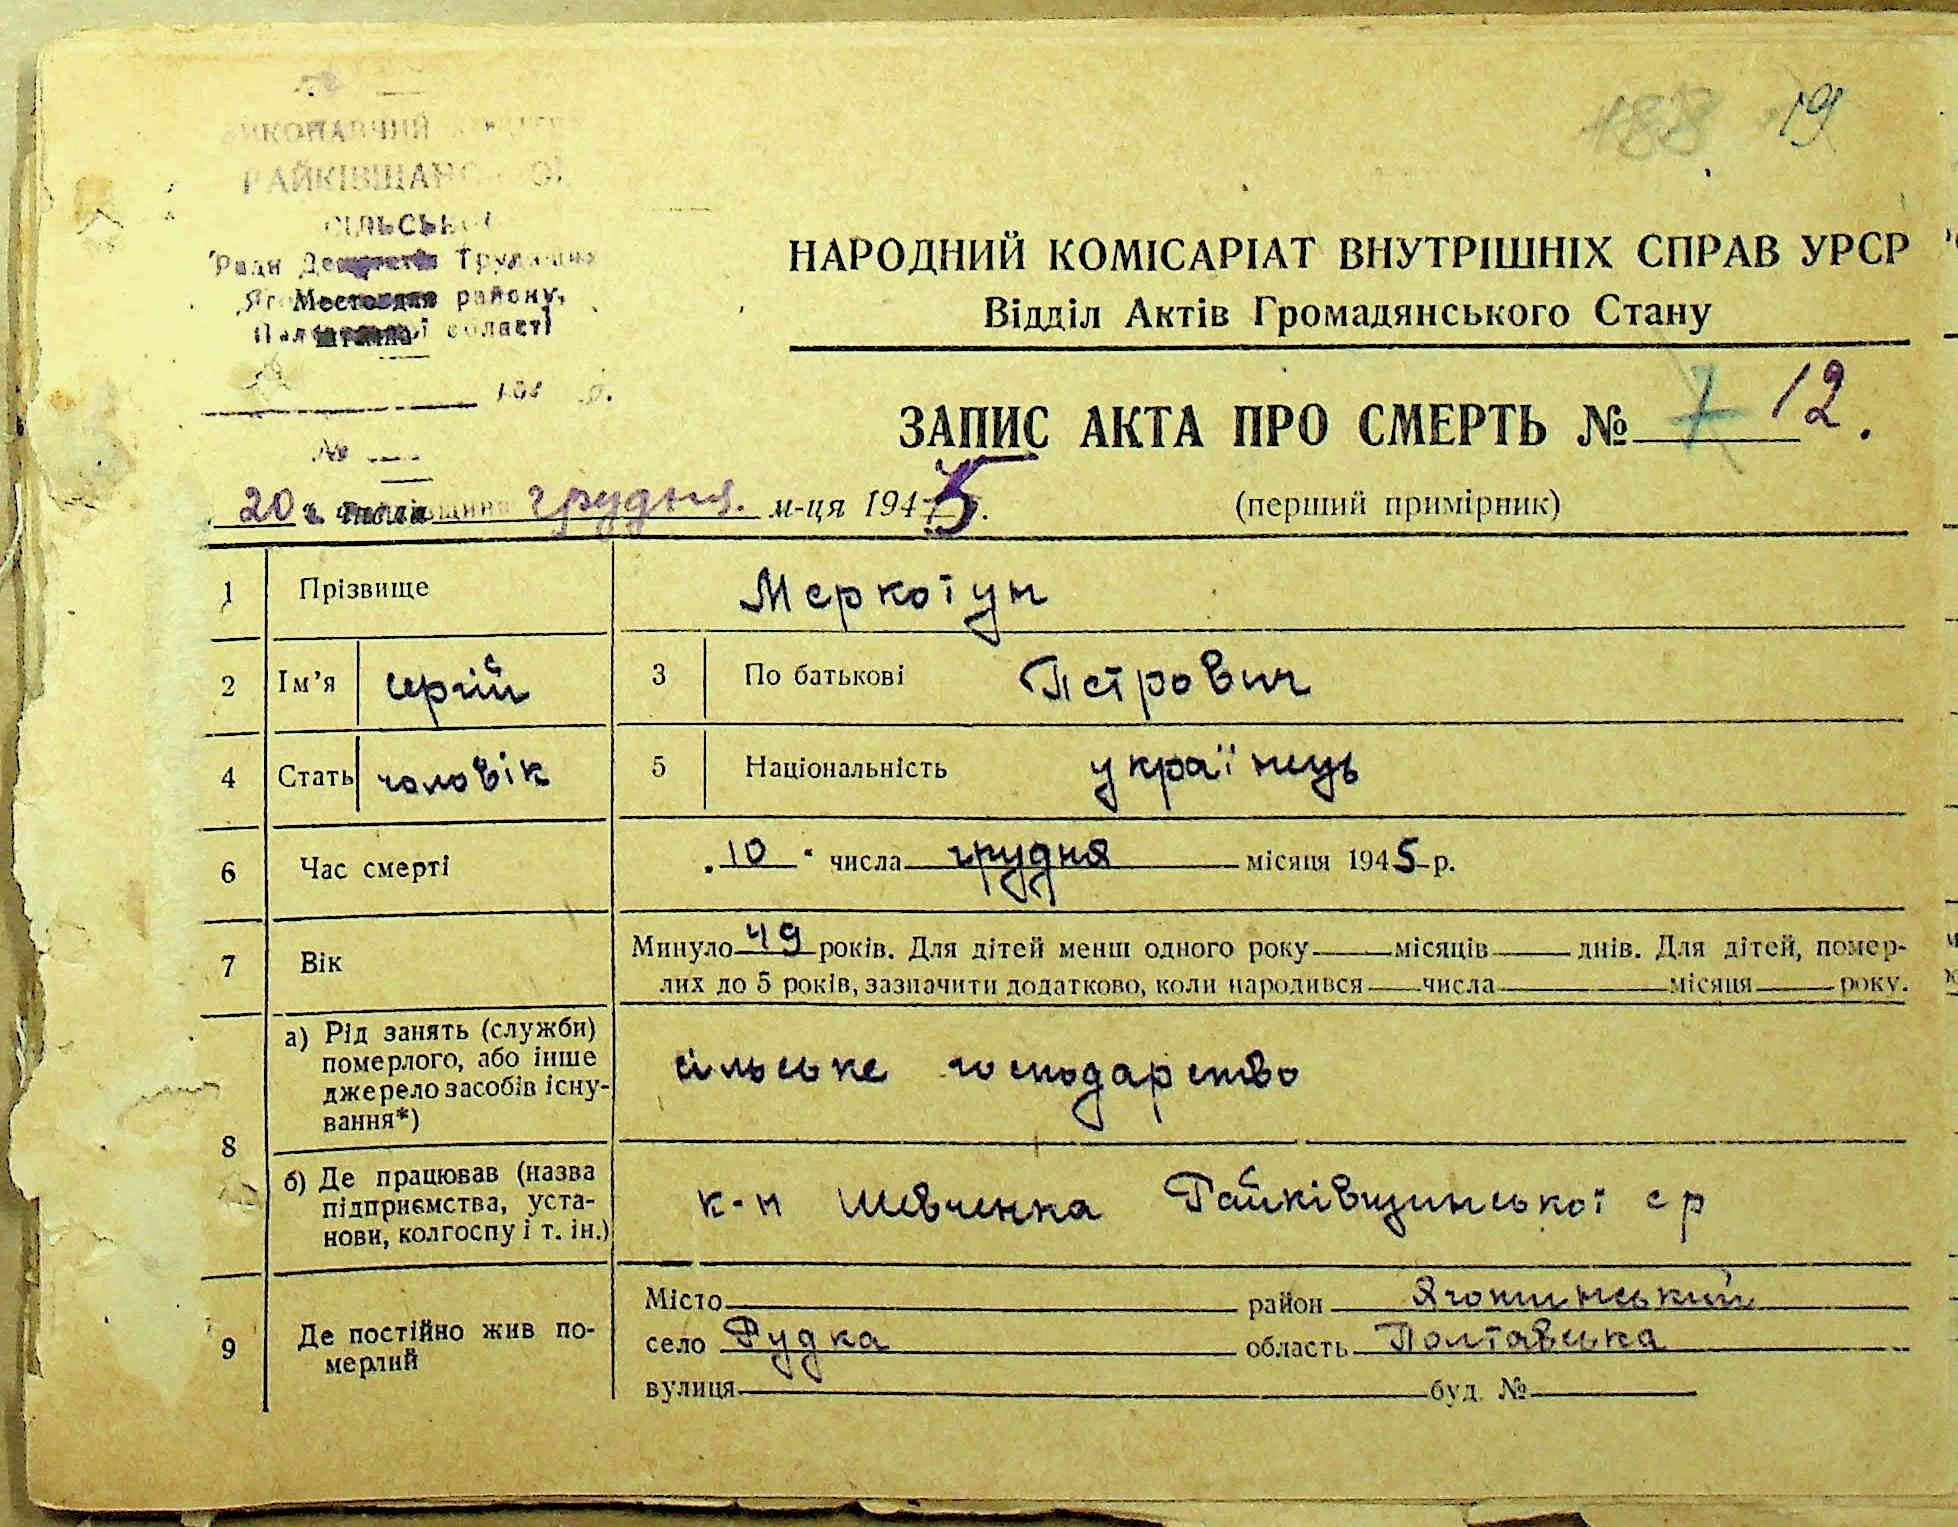 188 19
РАЙКІВЩАН
СІЛЬСЬК
Ради Трудящих
району,
області
№
НАРОДНИЙ КОМІСАРІАТ ВНУТРІШНІХ СПРАВ УРСР
Відділ Актів Громадянського Стану
ЗАПИС АКТА ПРО СМЕРТЬ № 7 12.
20 грудня. м-ця 1945 (перший примірник)
1 Прізвище Меркотун
2 Ім'я Сергій 3 По батькові Петрович
4 Стать чоловік 5 Національність українець
6 Час смерті 10 числа грудня місяця 1945 р.
7 Вік Минуло 49 років. Для дітей менш одного року місяців днів. Для дітей, помер-
лих до 5 років, зазначити додатково, коли народився числа місяця року.
8 а) Рід занять (служби)
померлого, або інше
джерело засобів існу-
вання*)
сільське господарство
б) Де працював (назва
підприємства, уста-
нови, колгоспу і т. ін.)
к-п Шевченка Райківщинської ср
9 Де постійно жив по-
мерлий
Місто район Яготинський
село Рудка область Полтавська
вулиця буд. №